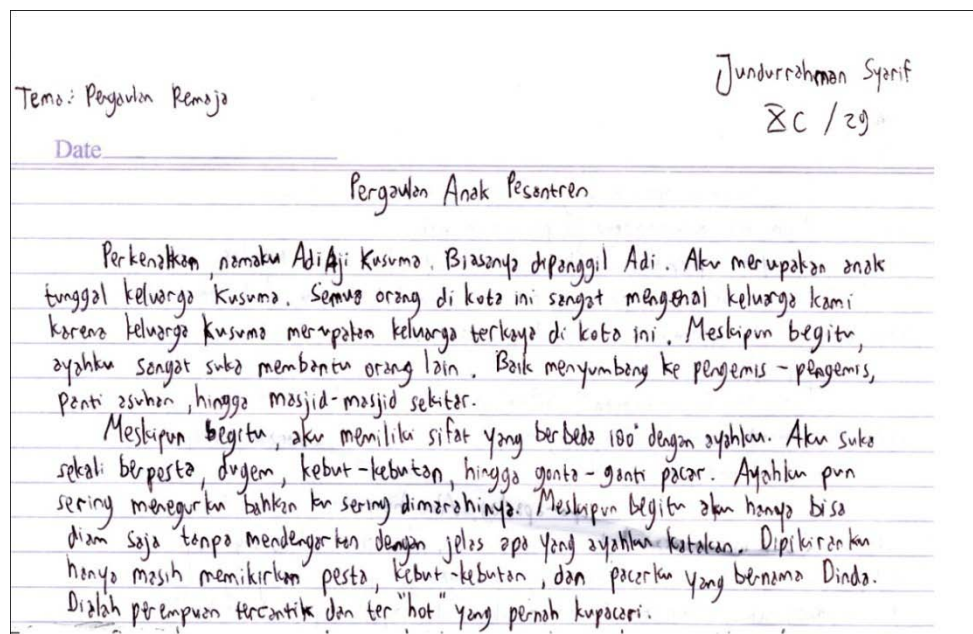 Jundurrahman Syarif
Tema: Pergaulan Remaja
8C / 29
Date
Pergaulan Anak Pesantren
Perkenalkan, namaku Adi Aji Kusuma. Biasanya dipanggil Adi. Aku merupakan anak
tunggal keluarga Kusuma. Semua orang di kota ini sangat mengenal keluarga kami
karena keluarga Kusuma merupakan keluarga terkaya di kota ini. Meskipun begitu,
ayahku sangat suka membantu orang lain. Baik menyumbang ke pengemis-pengemis,
panti asuhan, hingga masjid-masjid sekitar.
Meskipun begitu, aku memiliki sifat yang berbeda 180° dengan ayahku. Aku suka
sekali berpesta, dugem, kebut-kebutan, hingga gonta-ganti pacar. Ayahku pun
sering menegurku bahkan ku sering dimarahinya. Meskipun begitu aku hanya bisa
diam saja tanpa mendengarkan dengan jelas apa yang ayahku katakan. Dipikiranku
hanya masih memikirkan pesta, kebut-kebutan, dan pacarku yang bernama Dinda.
Dialah perempuan tercantik dan ter"hot" yang pernah kupacari.